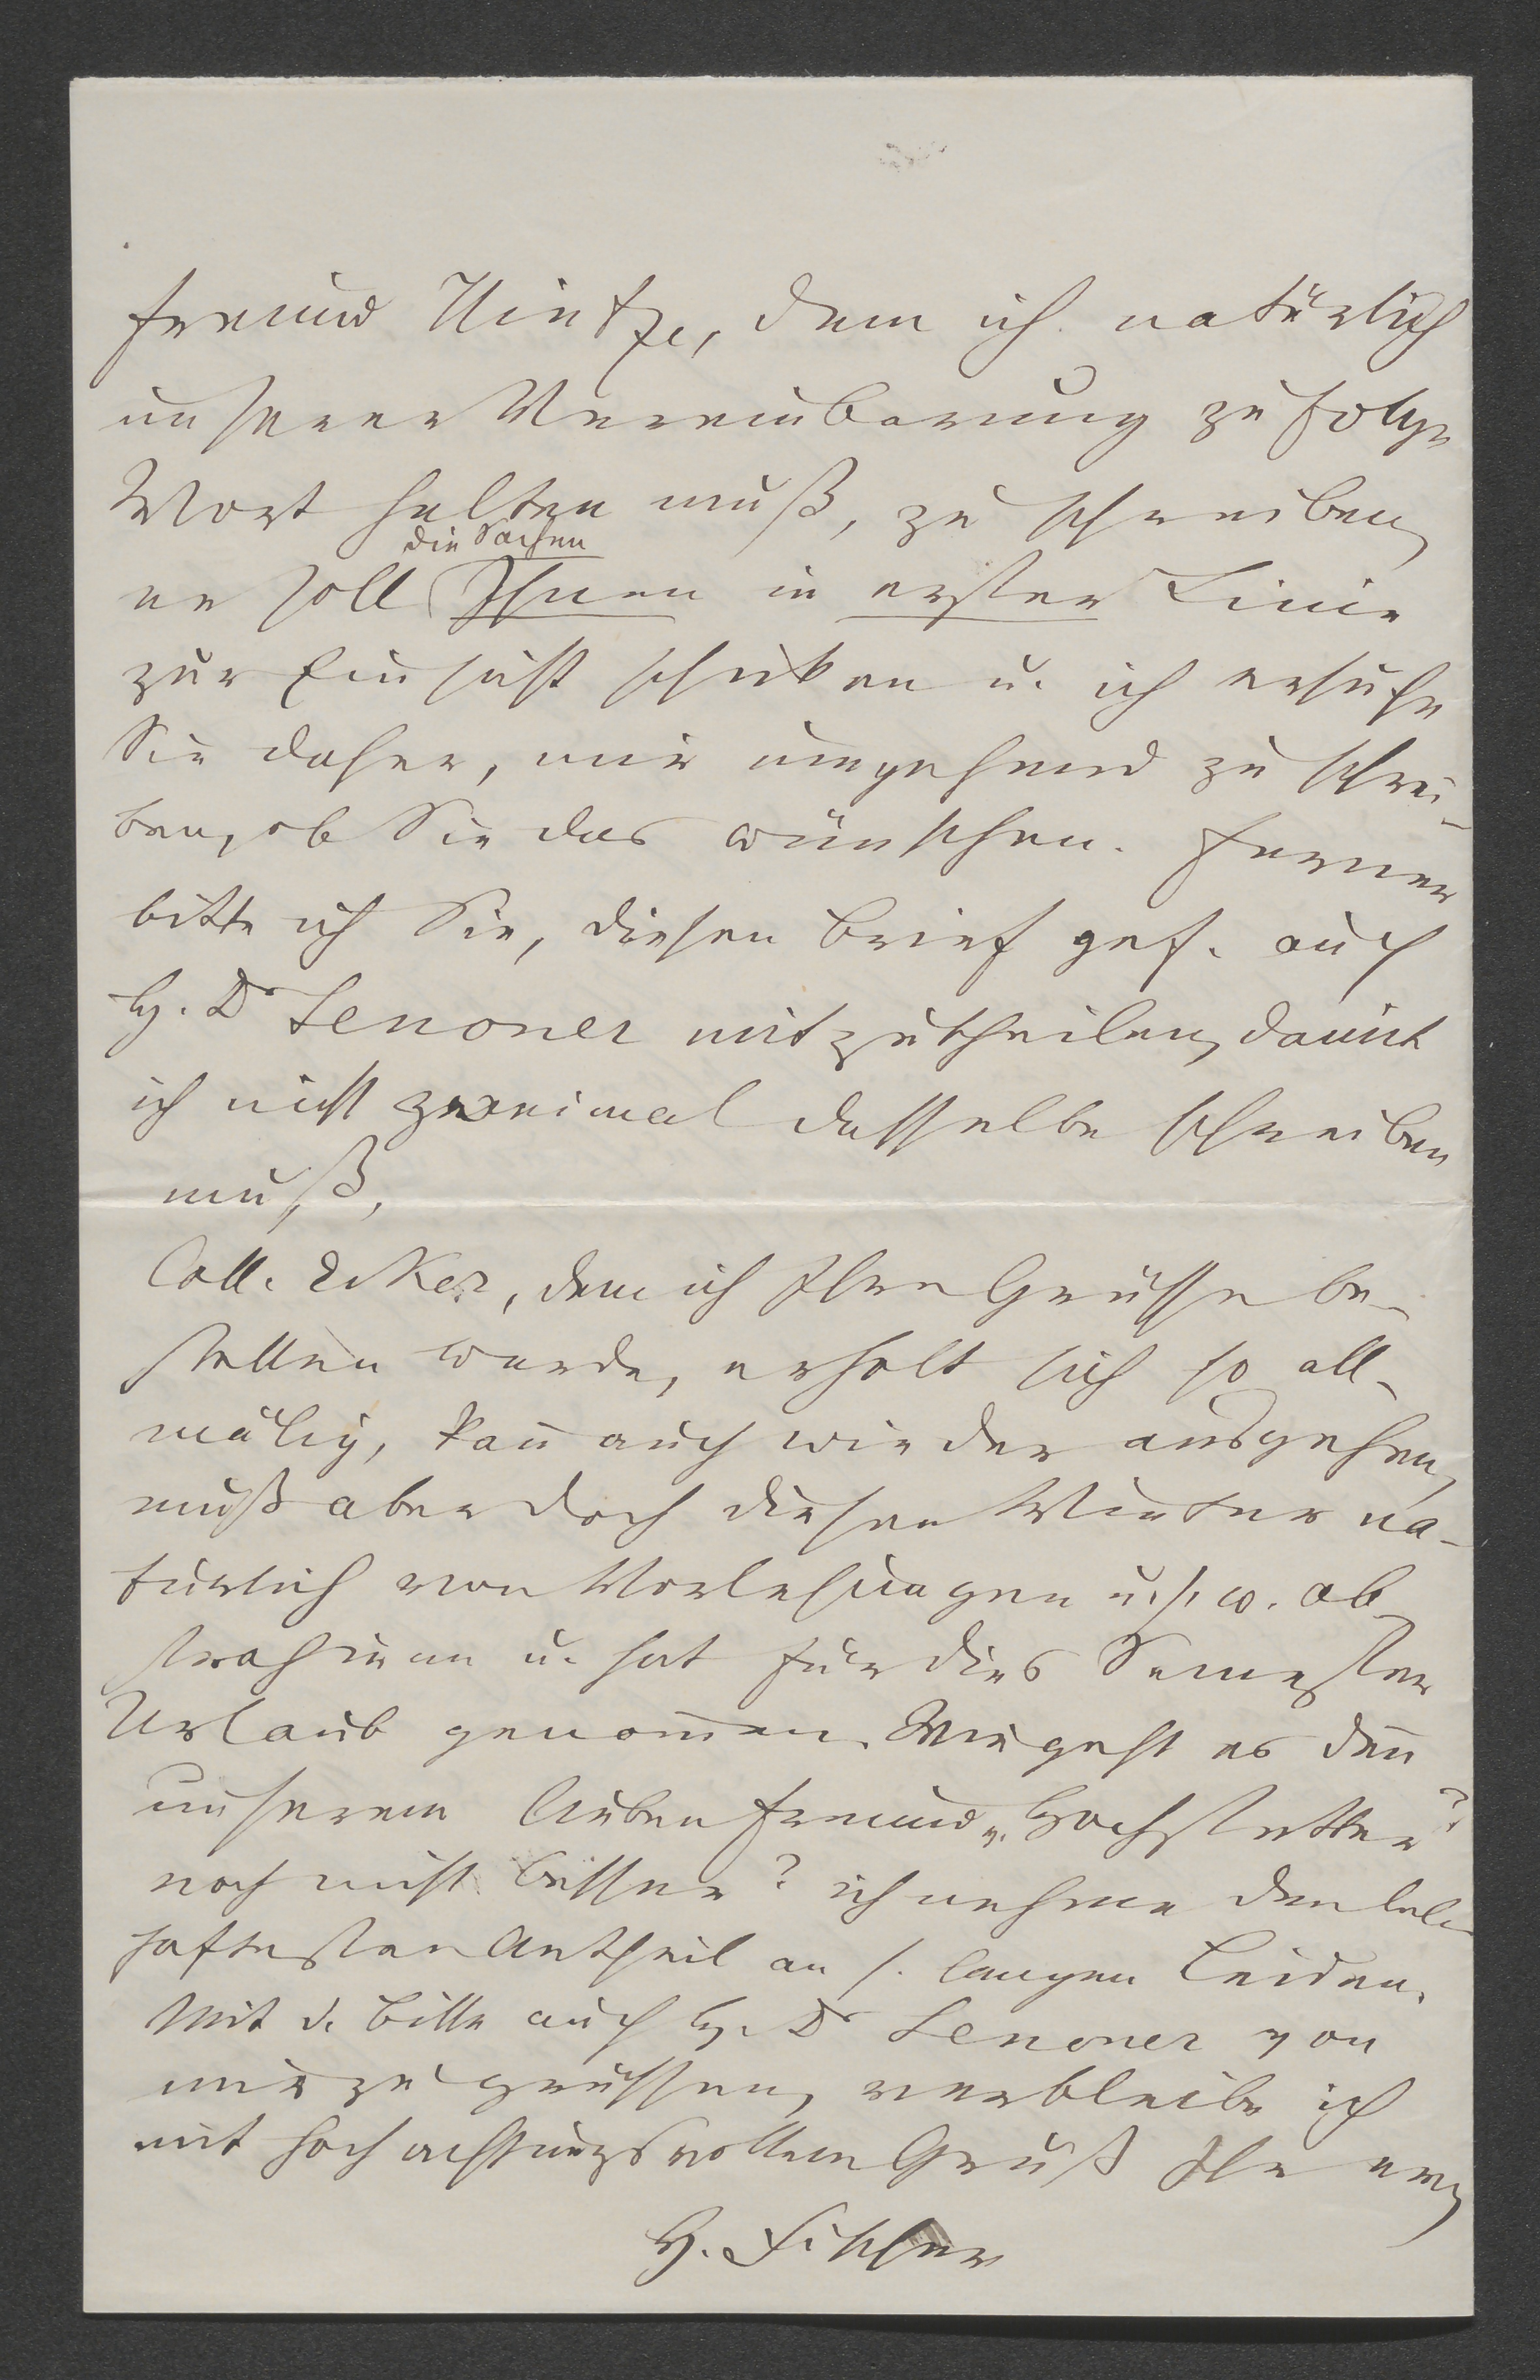 Freund Hintze, dem ich natürlich
unserer Vereinbarung zufolge
Wort halten muß, zu schreiben,
die Sachen
er soll Ihnen in erster Linie
zur Einsicht schicken u. ich ersuche
Sie daher, mir umgehend zu schrei-
ben, ob Sie das wünschen. Ferner
bitte ich Sie, diesen Brief gef. auch
H. Dr Senoner mitzutheilen, damit
ich nicht zweimal dasselbe schreiben
muß.
Coll. Ecker, dem ich Ihre Grüsse be-
stellen werde, erholt sich so all-
mälig, kan̄ auch wieder ausgehen,
muß aber doch diesen Winter na-
türlich von Vorlesungen u. s. w. ab-
strahiren u. hat für dies Semester
Urlaub genom̄en. Wie geht es den̄
unserem lieben Freund v. Hochstetter?
noch nicht besser? ich nehme den leb-
haftesten Antheil an s. langen Leiden.
Mit d. Bitte auch H. Dr Senoner von
mir zu grüssen, verbleibe ich
mit hochachtungsvollem Gruß Ihr erg
H. Fischer